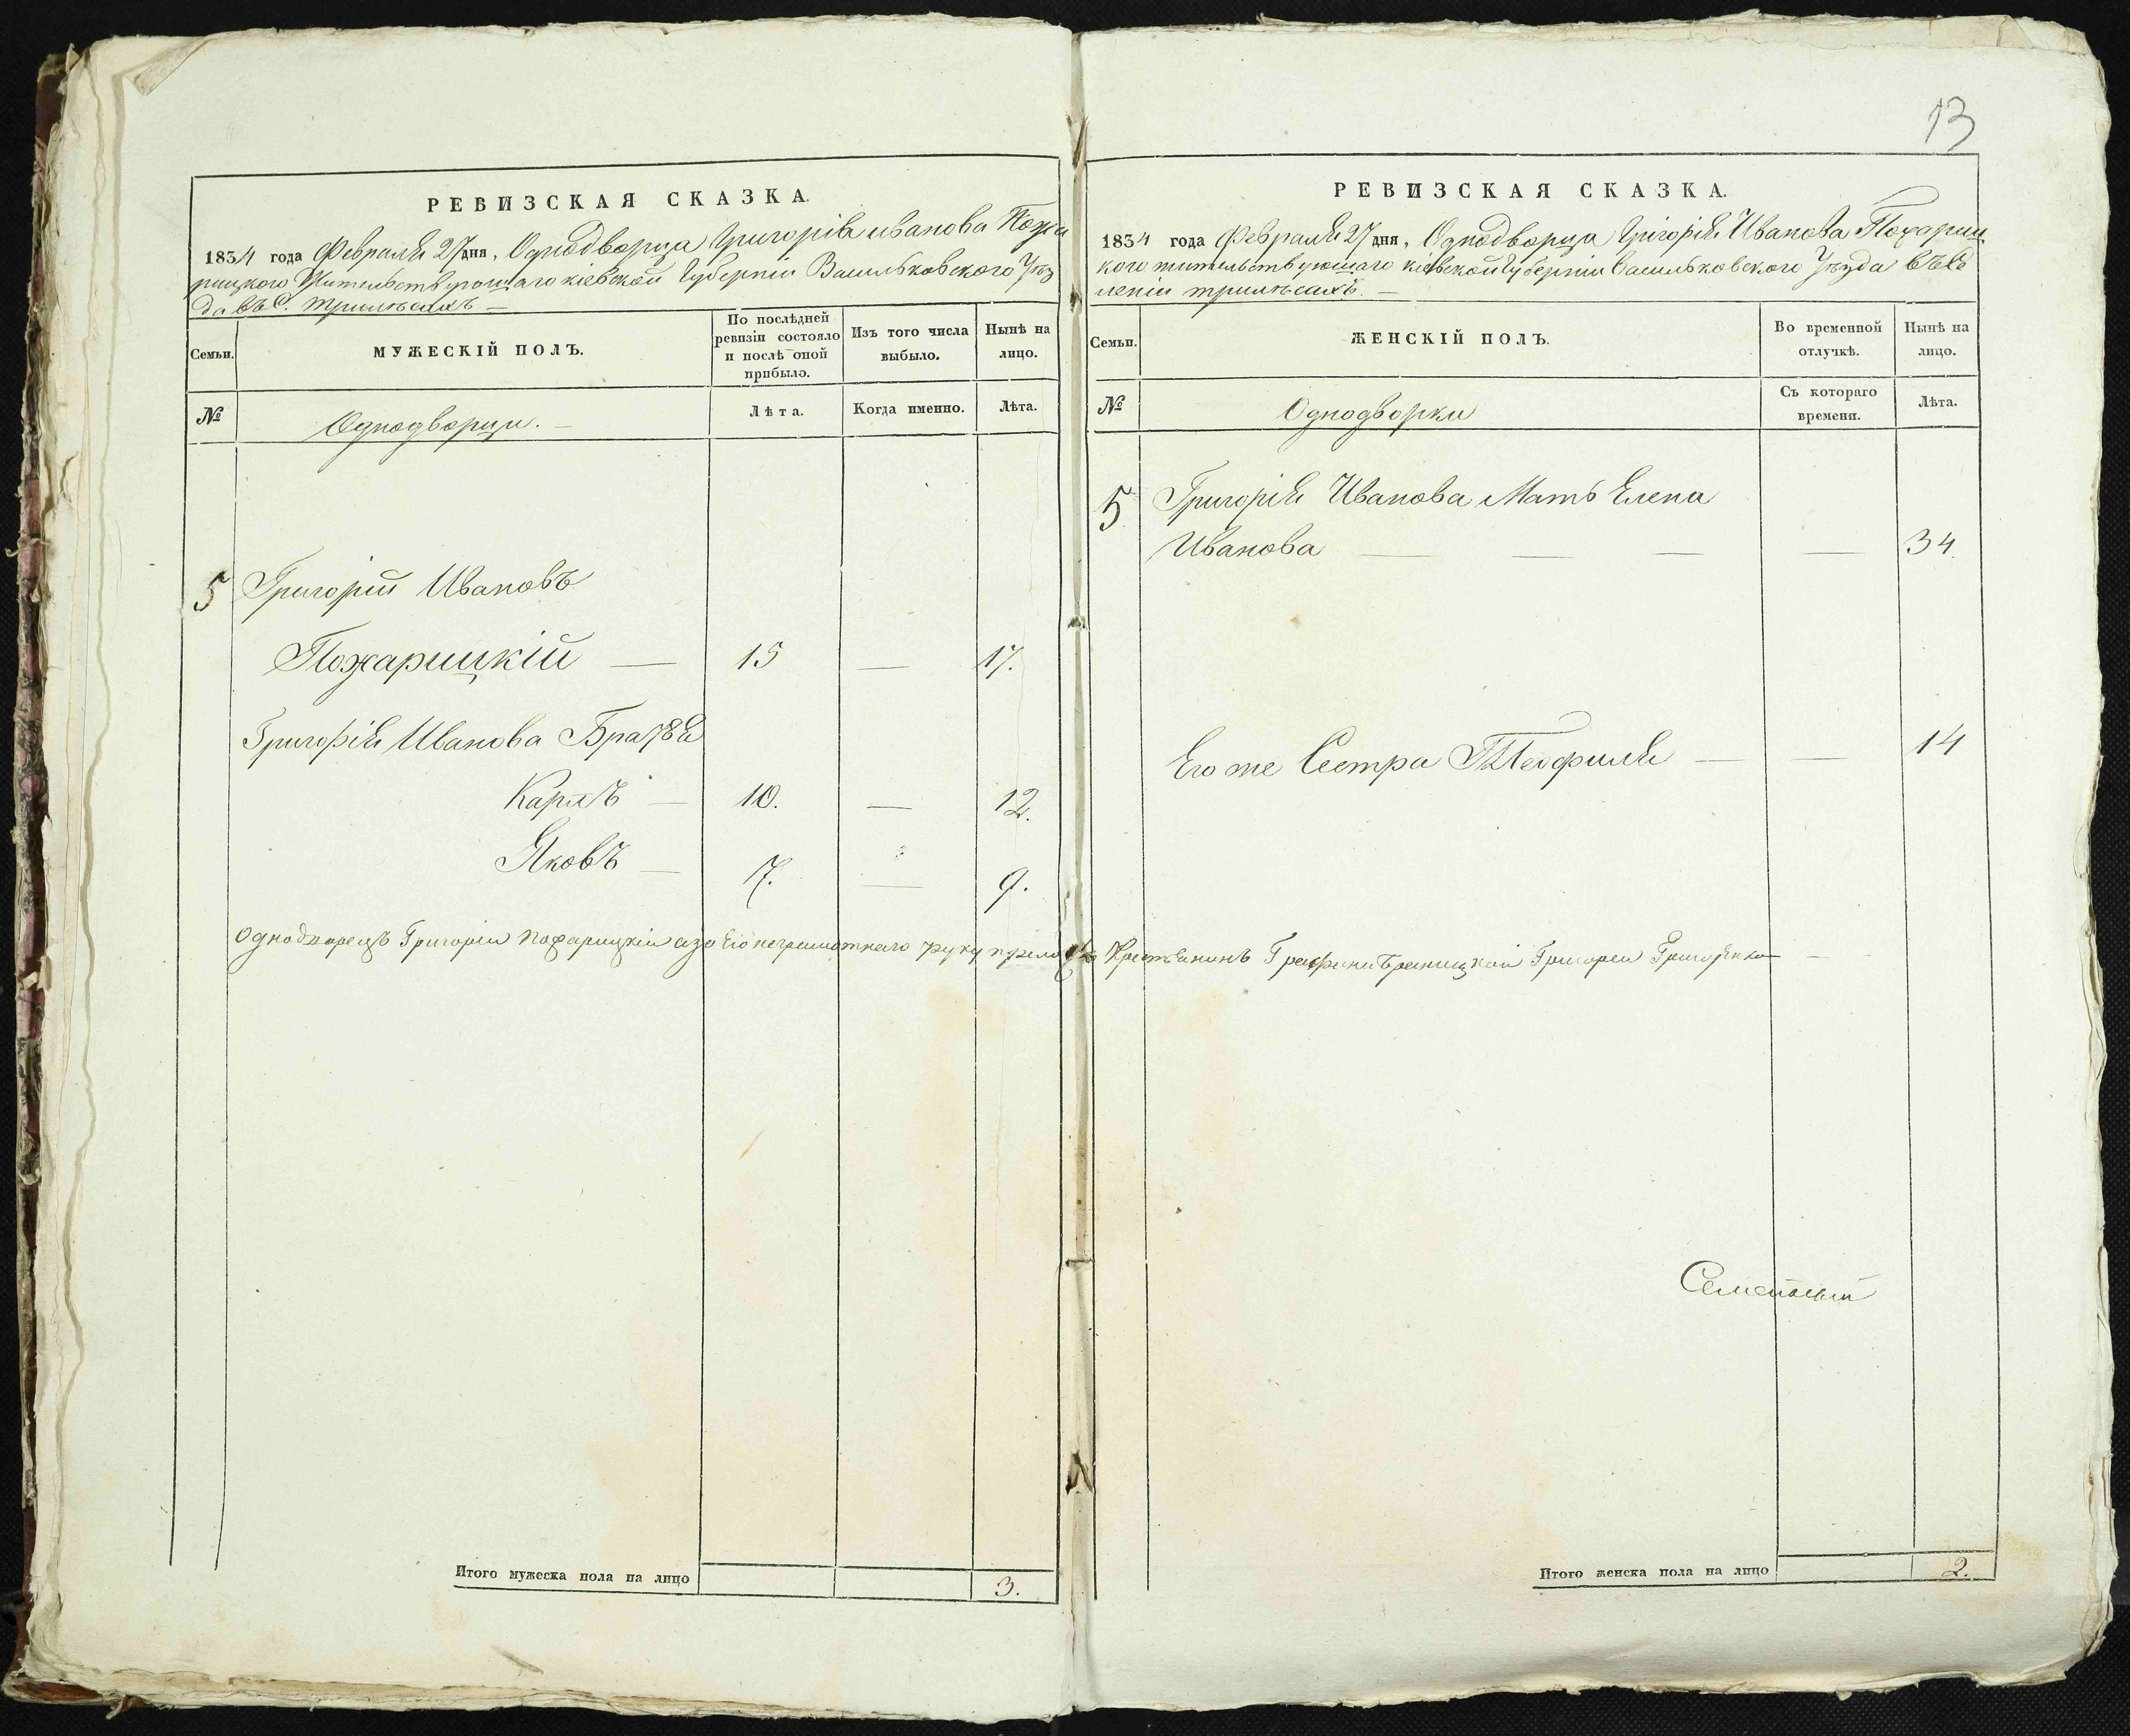 13
РЕВИЗСКАЯ СКАЗКА.
1834 года Февраля 27 дня, Однодворца Григорія иванова Пожа
рицкого Жительствующаго кіевской Губерніи Васильковского Уѣз
да въ С. трилѣсахъ —
Семьи.
МУЖЕСКІЙ ПОЛЪ.
По послѣдней
ревизіи состояло
и послѣ оной
прибыло.
Изъ того числа
выбыло.
Нынѣ на
лицо.
№
Однодворцы. —
Лѣта.
Когда именно.
Лѣта.
5 Григорій Ивановъ
Пожарицкій — 15 — 17.
Григорія Иванова Братья
Карлъ — 10. — 12.
Яковъ — 7. — 9.
Однодворецъ Григорій Пожарицкій а за Его неграмотнаго руку приложилъ Крестьянинъ Графини Браницкой Григорей Григоренко
Итого мужеска пола на лицо 3.
РЕВИЗСКАЯ СКАЗКА.
1834 года Февраля 27 дня, Однодворца Григорія Иванова Пожариц
кого жительствующаго кіевской Губерніи Васильковского Уѣзда въ Се
леніи трилѣсахъ. —
Семьи.
ЖЕНСКІЙ ПОЛЪ.
Во временной
отлучкѣ.
Нынѣ на
лицо.
№
Однодворки
Съ котораго
времени.
Лѣта.
5 Григорія Иванова Мать Елена
Иванова — — — — 34.
Его же Сестра Теофиля — — 14
Итого женска пола на лицо 2.